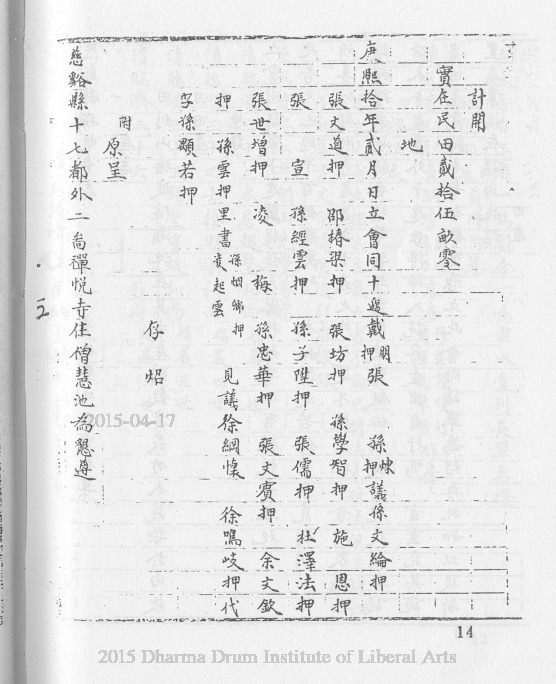 計開
實在民田貳拾伍畝零
地
康熙拾年貳月日立會同十遞戴明押張 孫 押議孫文綸押
張文道押 邵椿梁押 張坊押 孫學智押 施恩押
張宣 孫經雲押 孫子陞押 張儒押 杜澤法押
張世增押 凌梅 孫忠華押 張文賓押 余文欽
押 孫雲押里書孫烟鄉押 起雲 見議徐綱懷 徐鳴岐押代
字孫顯若押
存炤
附原呈
慈谿縣十七都外二啚禪悅寺住僧慧池為懇遵
14
2015-04-17
2015 Dharma Drum Institute of Liberal Arts